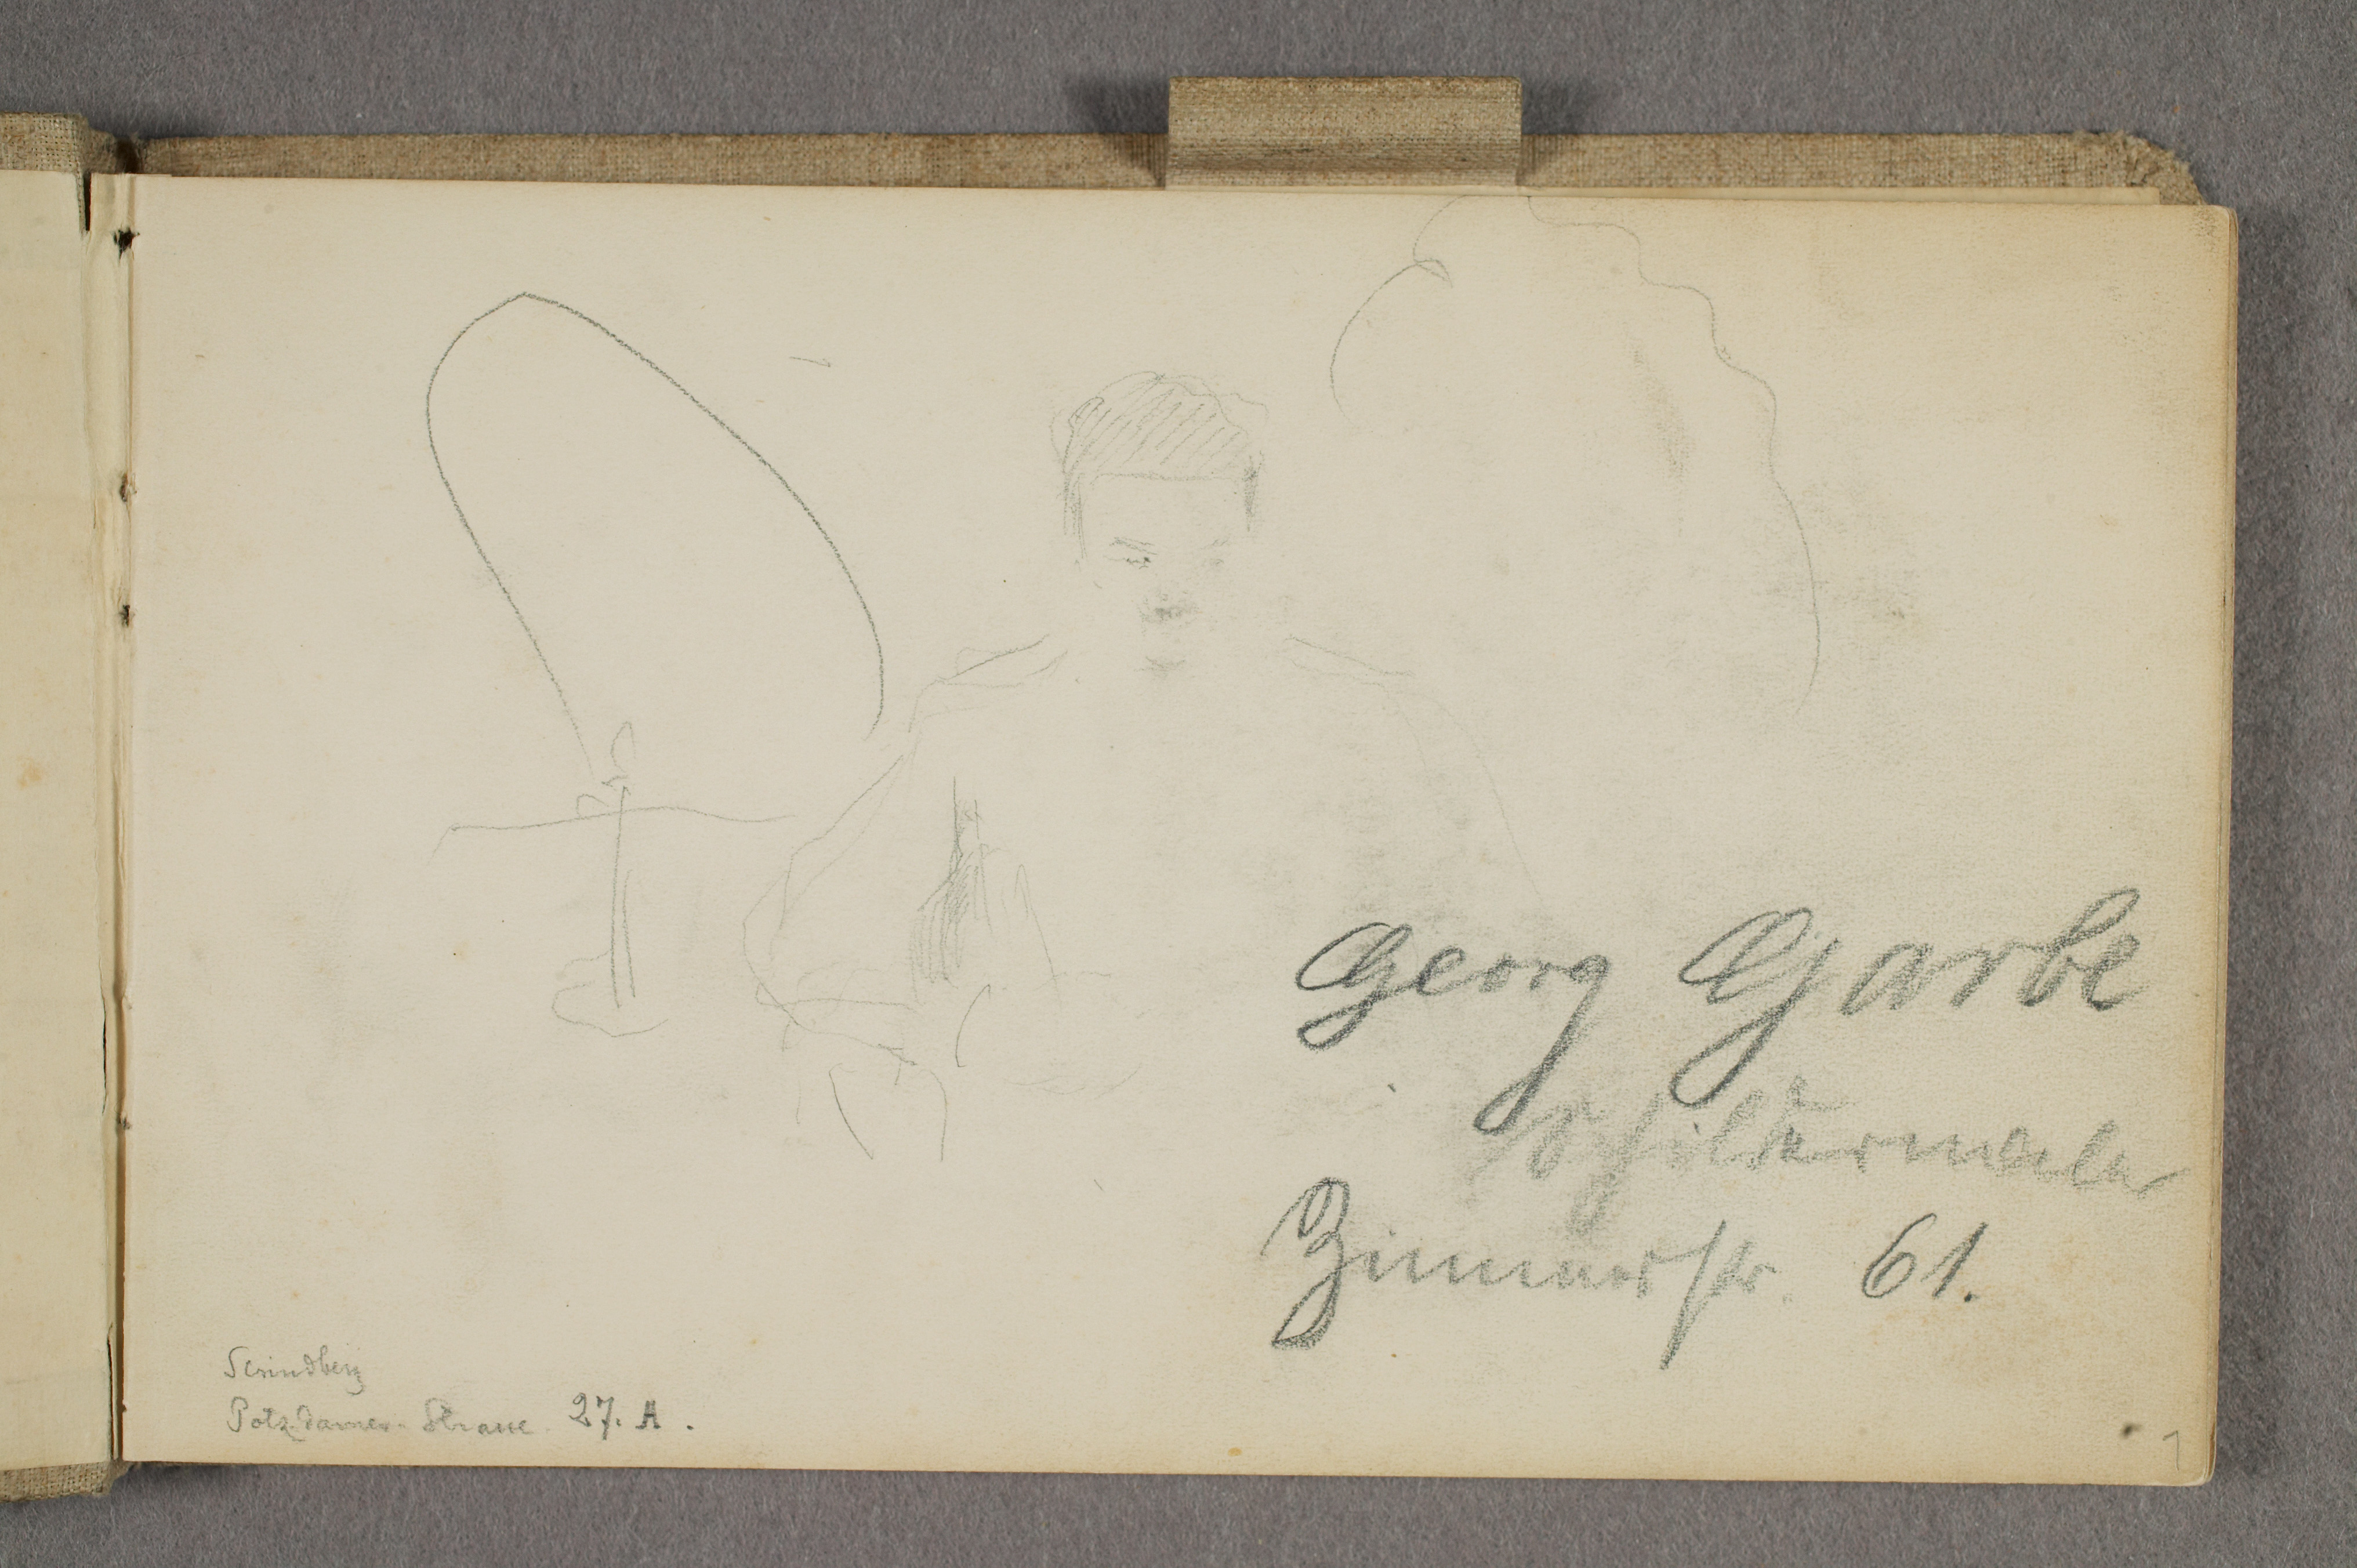 Georg Garbe
Schildermaler
Zimmerstr. 61.
Scrindberg
Potzdamer-Strasse 27. A.
1